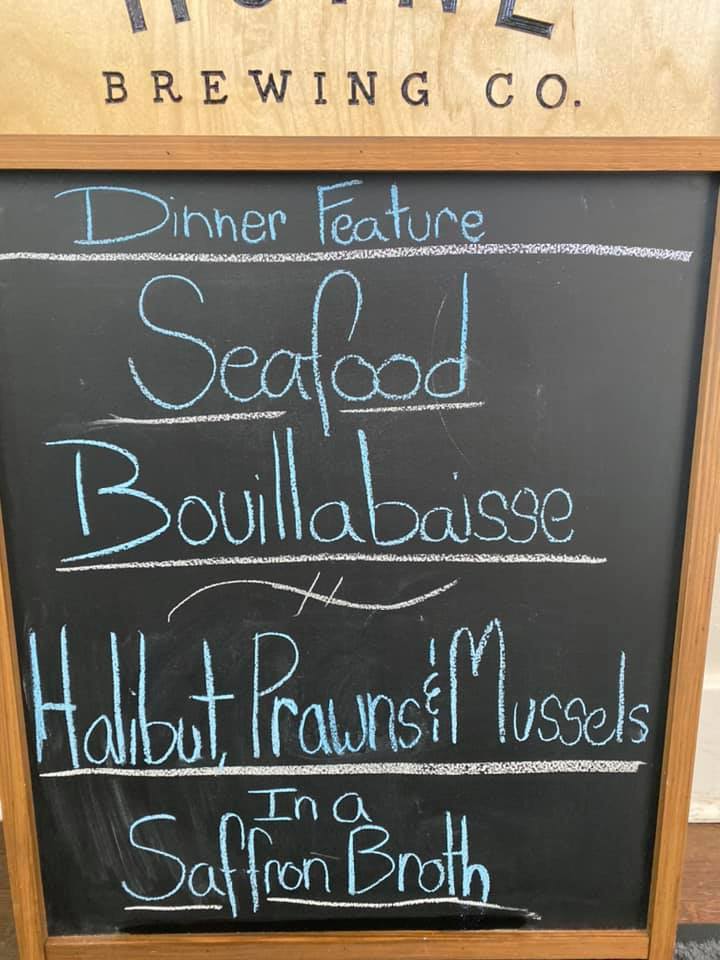 BREWING CO.
Dinner Feature
Seafood
Bouillabaisse
Halibut, Prawns & Mussels
In a
Saffron Broth